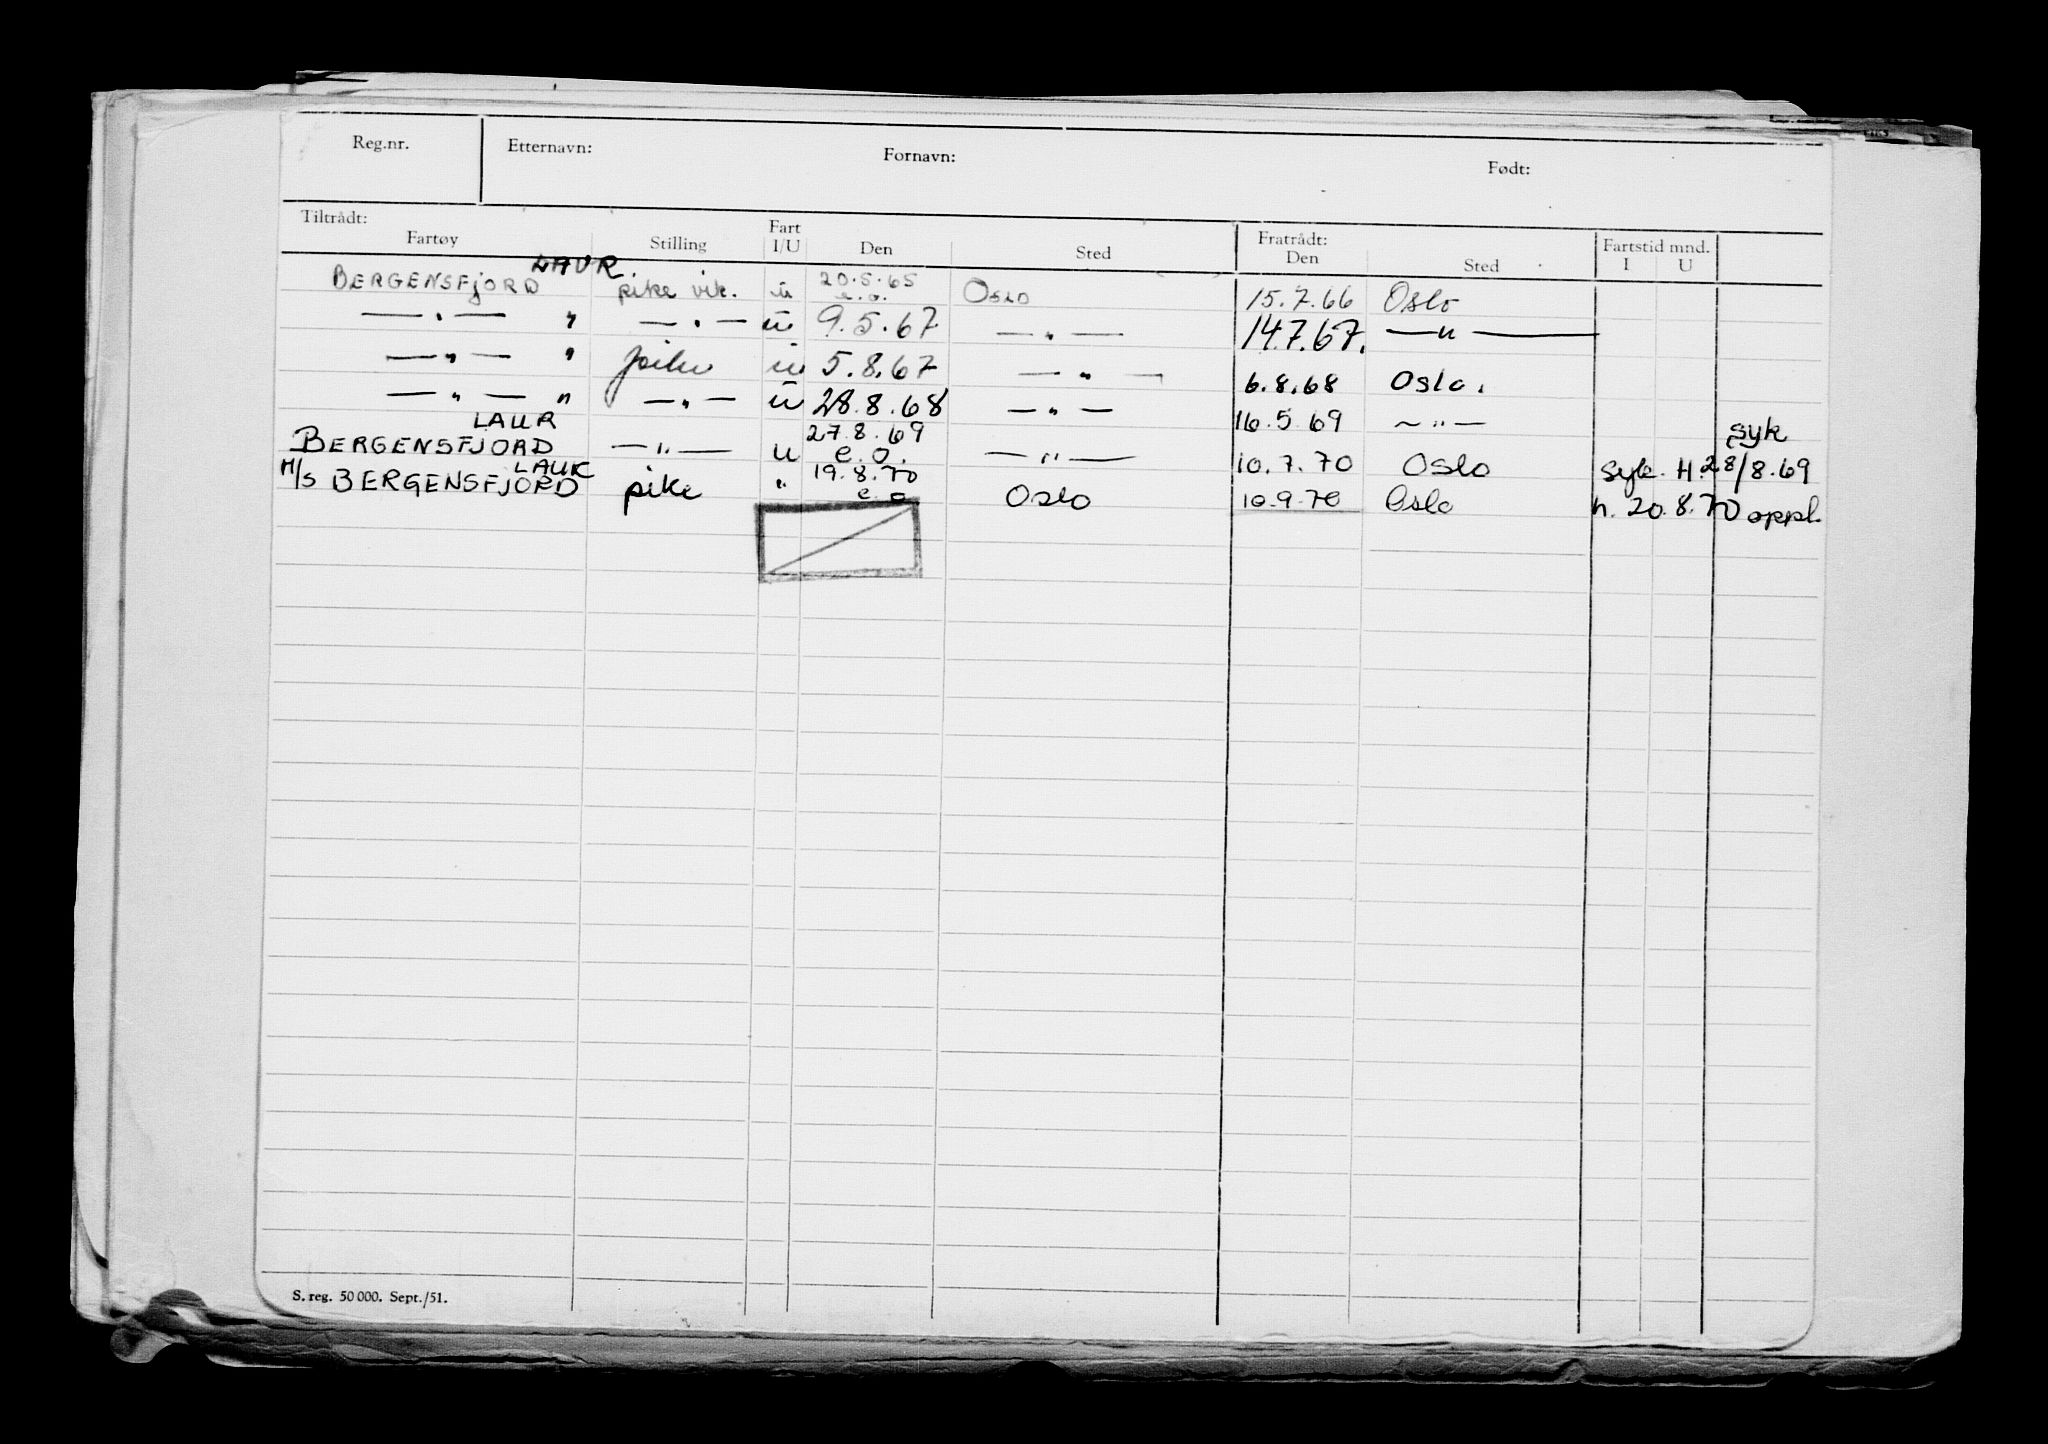 Reg.nr. Etternavn: Fornavn: Født:
Tiltrådt: Fratrådt: Fartstid mnd.
Fartøy Stilling Fart I/U Den Sted Den Sted I U
BERGENSFJORD LAUR. pike vik. ū 20.5.65 e.o. Oslo 15.7.66 Oslo
— " — " — " — ū 9.5.67 — " — 14.7.67. — " —
— " — " pike ū 5.8.67 — " — 6.8.68 Oslo.
— " — " — " — ū 28.8.68 — " — 16.5.69 — " —
BERGENSFJORD LAUR — " — u 27.8.69 e.o. — " — 10.7.70 Oslo syk. H. 28/8.69 syk
M/S BERGENSFJORD LAUR pike " 19.8.70 e.o Oslo 10.9.70 Oslo h. 20.8.70 oppl.
S. reg. 50 000. Sept./51.